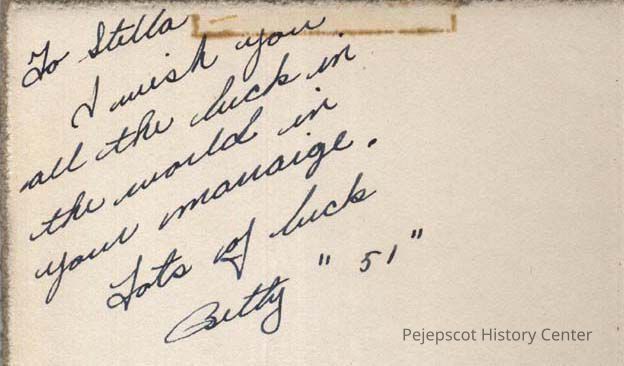 To Stella
I wish you
all the luck in
the world in
your marraige.
Lots of luck
Betty "51"
Pejepscot History Center